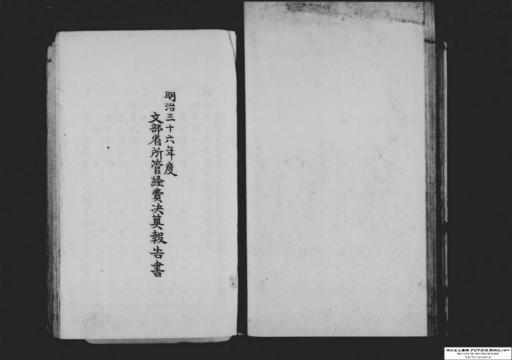 明治三十六年度
文部省所管経費决算報告書